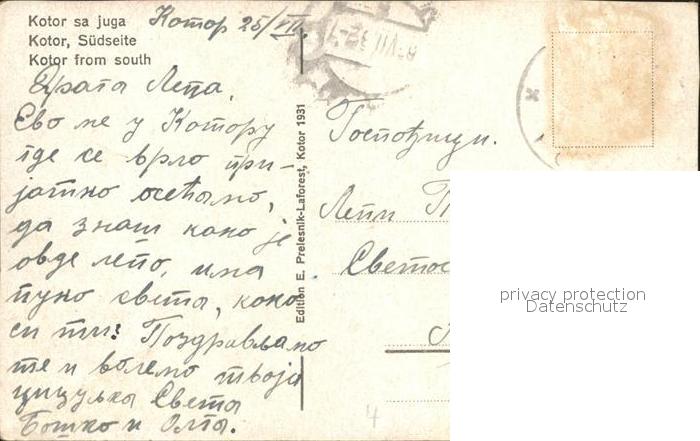 Kotor sa juga
Kotor, Südseite
Kotor from south
Котор 25/VII.
Драга Лепа,
Ево ме у Котору
где се врло при-
јатно осећамо,
да знаш како је
овде лепо, има
пуно света, како
си ти? Поздрављамо
те и волемо твоја
Света
Бошко и Олга.
Edition E. Prelesnik-Laforest, Kotor 1931
Госпођици.
Лепи
Светос
4
privacy protection
Datenschutz